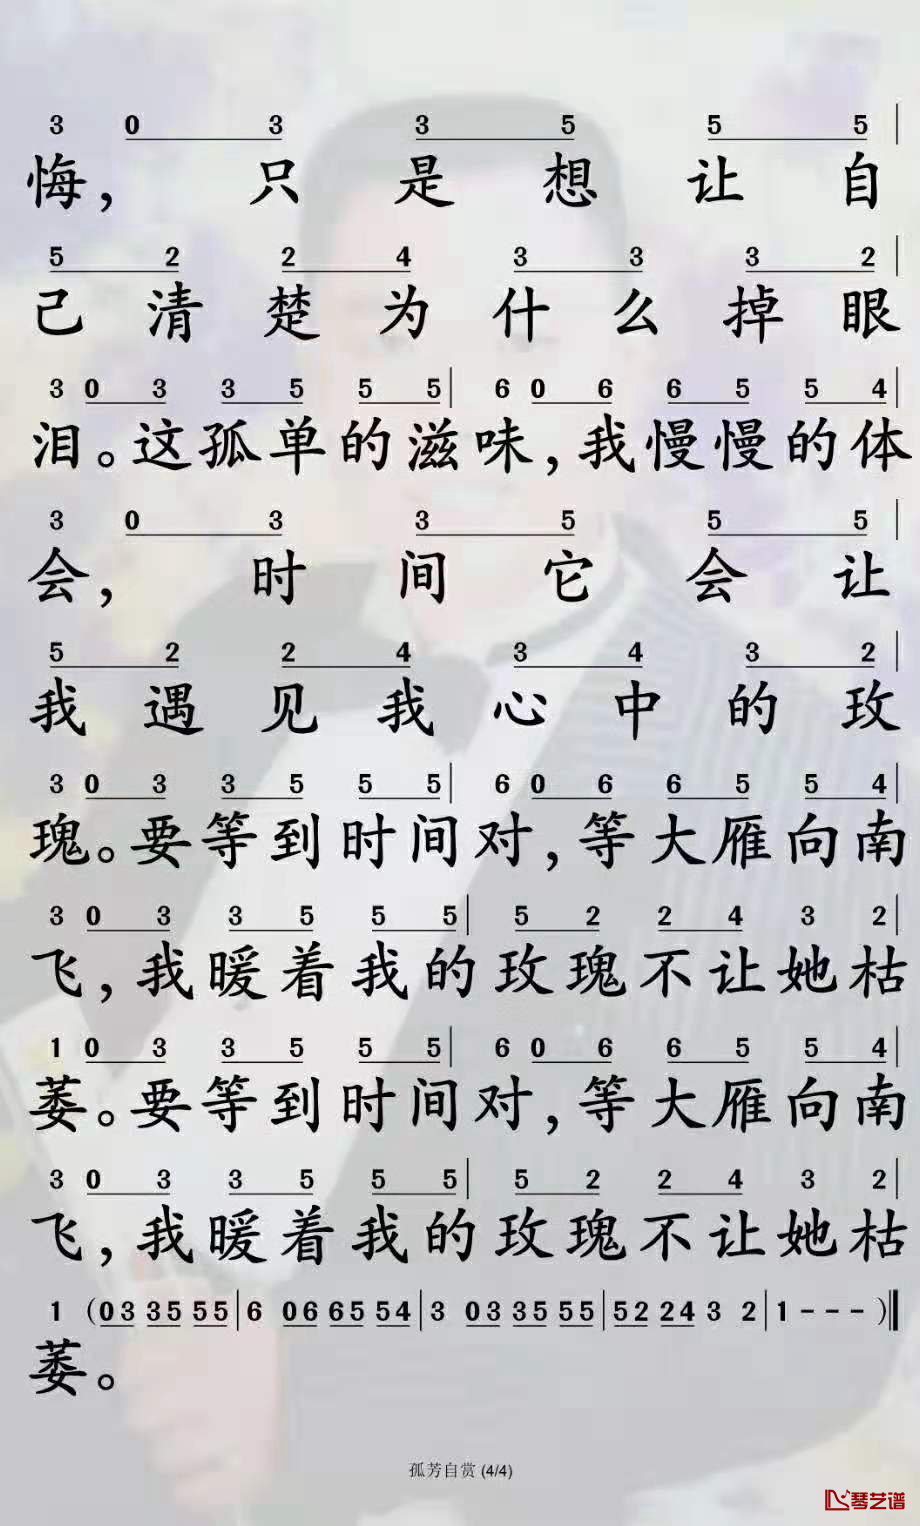 3 0 3 3 5 5 5 |
悔，只是想让自
5 2 2 4 3 3 3 2 |
己清楚为什么掉眼
3 0 3 3 5 5 5 | 6 0 6 6 5 5 4
泪。这孤单的滋味，我慢慢的体
3 0 3 3 5 5 5 |
会，时间它会让
5 2 2 4 3 4 3 2 |
我遇见我心中的玫
3 0 3 3 5 5 5 | 6 0 6 6 5 5 4 |
瑰。要等到时间对，等大雁向南
3 0 3 3 5 5 5 | 5 2 2 4 3 2 |
飞，我暖着我的玫瑰不让她枯
1 0 3 3 5 5 5 | 6 0 6 6 5 5 4 |
萎。要等到时间对，等大雁向南
3 0 3 3 5 5 5 | 5 2 2 4 3 2 |
飞，我暖着我的玫瑰不让她枯
1 (03 35 55 | 6 06 65 54 | 3 03 35 55 | 52 24 3 2 | 1 - - - )‖
萎。
孤芳自赏 (4/4)
琴艺谱